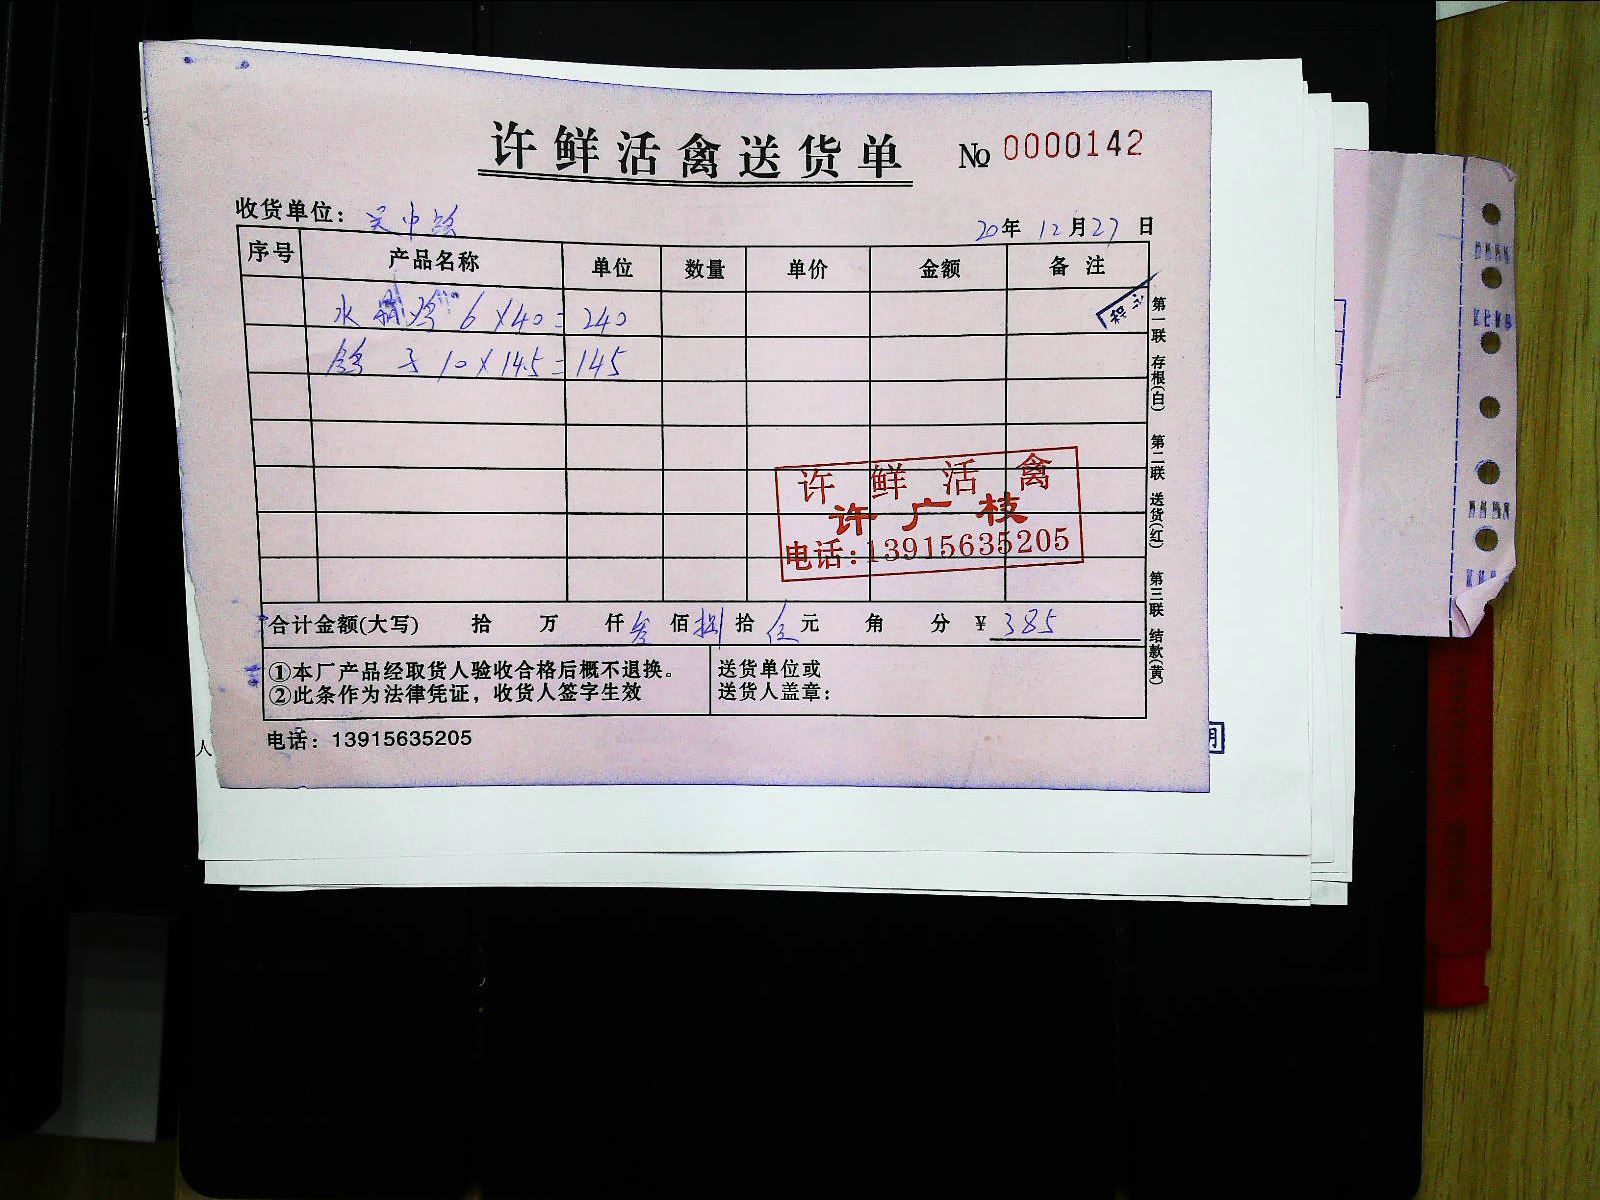 许鲜活禽送货单 No 0000142
收货单位: 吴中
20年 12月27日
序号 产品名称 单位 数量 单价 金额 备注
水 鸡 6×40= 240
鸽子 10×14.5= 145
许鲜活禽
许广枝
电话:13915635205
合计金额(大写) 拾 万 仟叁佰捌拾伍元 角 分 ¥ 385
①本厂产品经取货人验收合格后概不退换。
②此条作为法律凭证，收货人签字生效
送货单位或
送货人盖章:
电话: 13915635205
第一联 存根(白) 第二联 送货(红) 第三联 结款(黄)
人